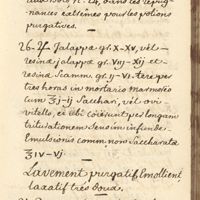 nances extrêmes pour les potions
purgatives.
26. ♃ Jalappæ gr. X-XV, vel
resinæ jalappæ gr. VIIJ-XIJ et
resinæ Scamm. gr. IJ-VI. tere per
tres horas in mortario marmoreo
cum ʒj-ij Sacchari, vel ovi
vitello, et ubi coierint per longam
triturationem Sensim infunde
Emulsionis comm. non Saccharatæ
℥IV-VJ.
Lavement purgatif, Emollient,
laxatif très doux.